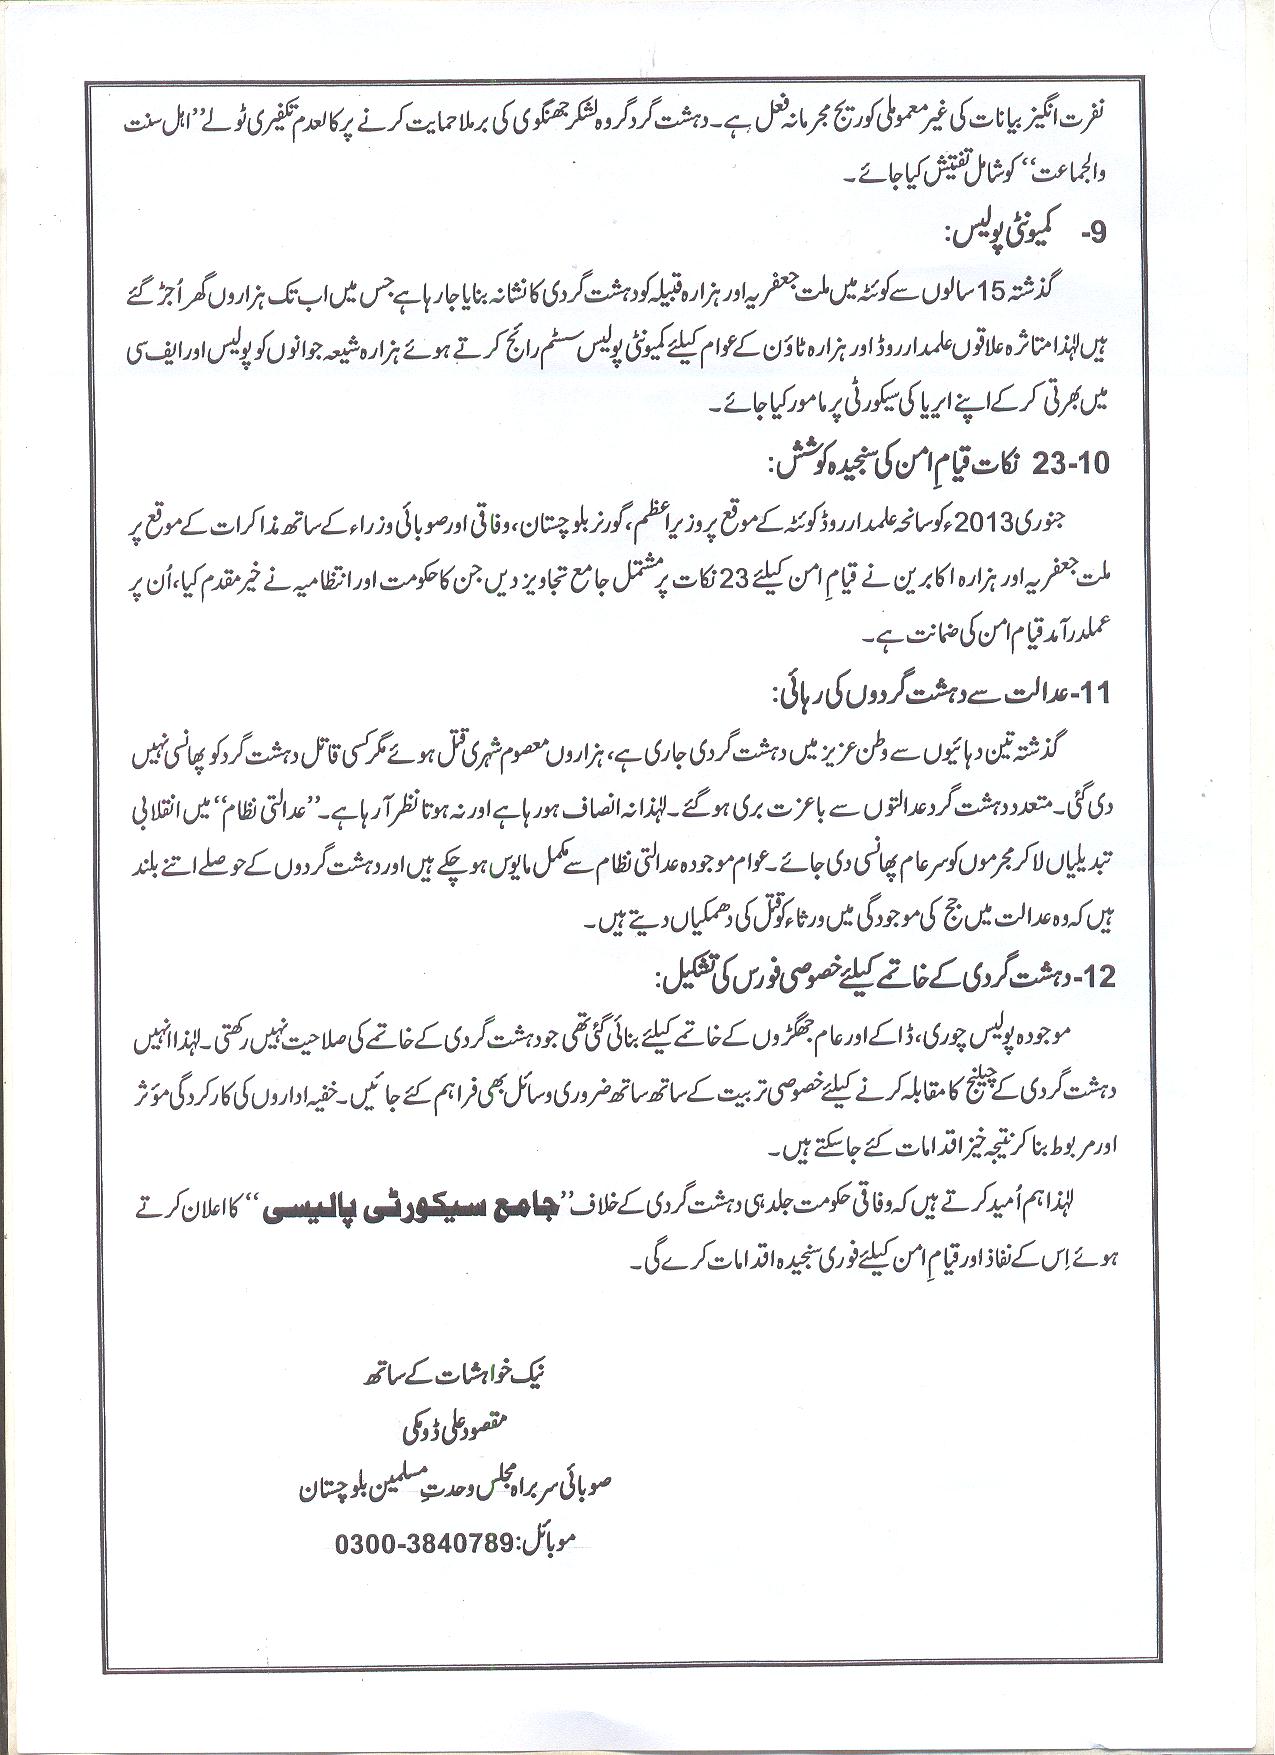 نفرت انگیز بیانات کی غیر معمولی کوریج مجرمانہ فعل ہے۔ دہشت گرد گروہ لشکر جھنگوی کی برملا حمایت کرنے پر کالعدم تکفیری ٹولے ’’اہل سنت
والجماعت‘‘ کو شامل تفتیش کیا جائے۔
9- کمیونٹی پولیس:
گذشتہ 15 سالوں سے کوئٹہ میں ملت جعفریہ اور ہزارہ قبیلہ کو دہشت گردی کا نشانہ بنایا جا رہا ہے جس میں اب تک ہزاروں گھر اُجڑ گئے
ہیں لہٰذا متاثرہ علاقوں علمدار روڈ اور ہزارہ ٹاؤن کے عوام کیلئے کمیونٹی پولیس سسٹم رائج کرتے ہوئے ہزارہ شیعہ جوانوں کو پولیس اور ایف سی
میں بھرتی کر کے اپنے ایریا کی سیکورٹی پر مامور کیا جائے۔
10-23 نکات قیامِ امن کی سنجیدہ کوشش:
جنوری 2013ء کو سانحہ علمدار روڈ کوئٹہ کے موقع پر وزیراعظم، گورنر بلوچستان، وفاقی اور صوبائی وزراء کے ساتھ مذاکرات کے موقع پر
ملت جعفریہ اور ہزارہ اکابرین نے قیامِ امن کیلئے 23 نکات پر مشتمل جامع تجاویز دیں جن کا حکومت اور انتظامیہ نے خیر مقدم کیا، اُن پر
عملدرآمد قیام امن کی ضمانت ہے۔
11- عدالت سے دہشت گردوں کی رہائی:
گذشتہ تین دہائیوں سے وطن عزیز میں دہشت گردی جاری ہے، ہزاروں معصوم شہری قتل ہوئے مگر کسی قاتل دہشت گرد کو پھانسی نہیں
دی گئی۔ متعدد دہشت گرد عدالتوں سے باعزت بری ہو گئے۔ لہٰذا نہ انصاف ہو رہا ہے اور نہ ہوتا نظر آ رہا ہے۔ ’’عدالتی نظام‘‘ میں انقلابی
تبدیلیاں لا کر مجرموں کو سرعام پھانسی دی جائے۔ عوام موجودہ عدالتی نظام سے مکمل مایوس ہو چکے ہیں اور دہشت گردوں کے حوصلے اتنے بلند
ہیں کہ وہ عدالت میں جج کی موجودگی میں ورثاء کو قتل کی دھمکیاں دیتے ہیں۔
12- دہشت گردی کے خاتمے کیلئے خصوصی فورس کی تشکیل:
موجودہ پولیس چوری، ڈاکے اور عام جھگڑوں کے خاتمے کیلئے بنائی گئی تھی جو دہشت گردی کے خاتمے کی صلاحیت نہیں رکھتی۔ لہٰذا انہیں
دہشت گردی کے چیلنج کا مقابلہ کرنے کیلئے خصوصی تربیت کے ساتھ ساتھ ضروری وسائل بھی فراہم کئے جائیں۔ خفیہ اداروں کی کارکردگی مؤثر
اور مربوط بنا کر نتیجہ خیز اقدامات کئے جا سکتے ہیں۔
لہٰذا ہم اُمید کرتے ہیں کہ وفاقی حکومت جلد ہی دہشت گردی کے خلاف ’’جامع سیکورٹی پالیسی‘‘ کا اعلان کرتے
ہوئے اِس کے نفاذ اور قیامِ امن کیلئے فوری سنجیدہ اقدامات کرے گی۔
نیک خواہشات کے ساتھ
مقصود علی ڈومکی
صوبائی سربراہ مجلس وحدتِ مسلمین بلوچستان
موبائل: 0300-3840789